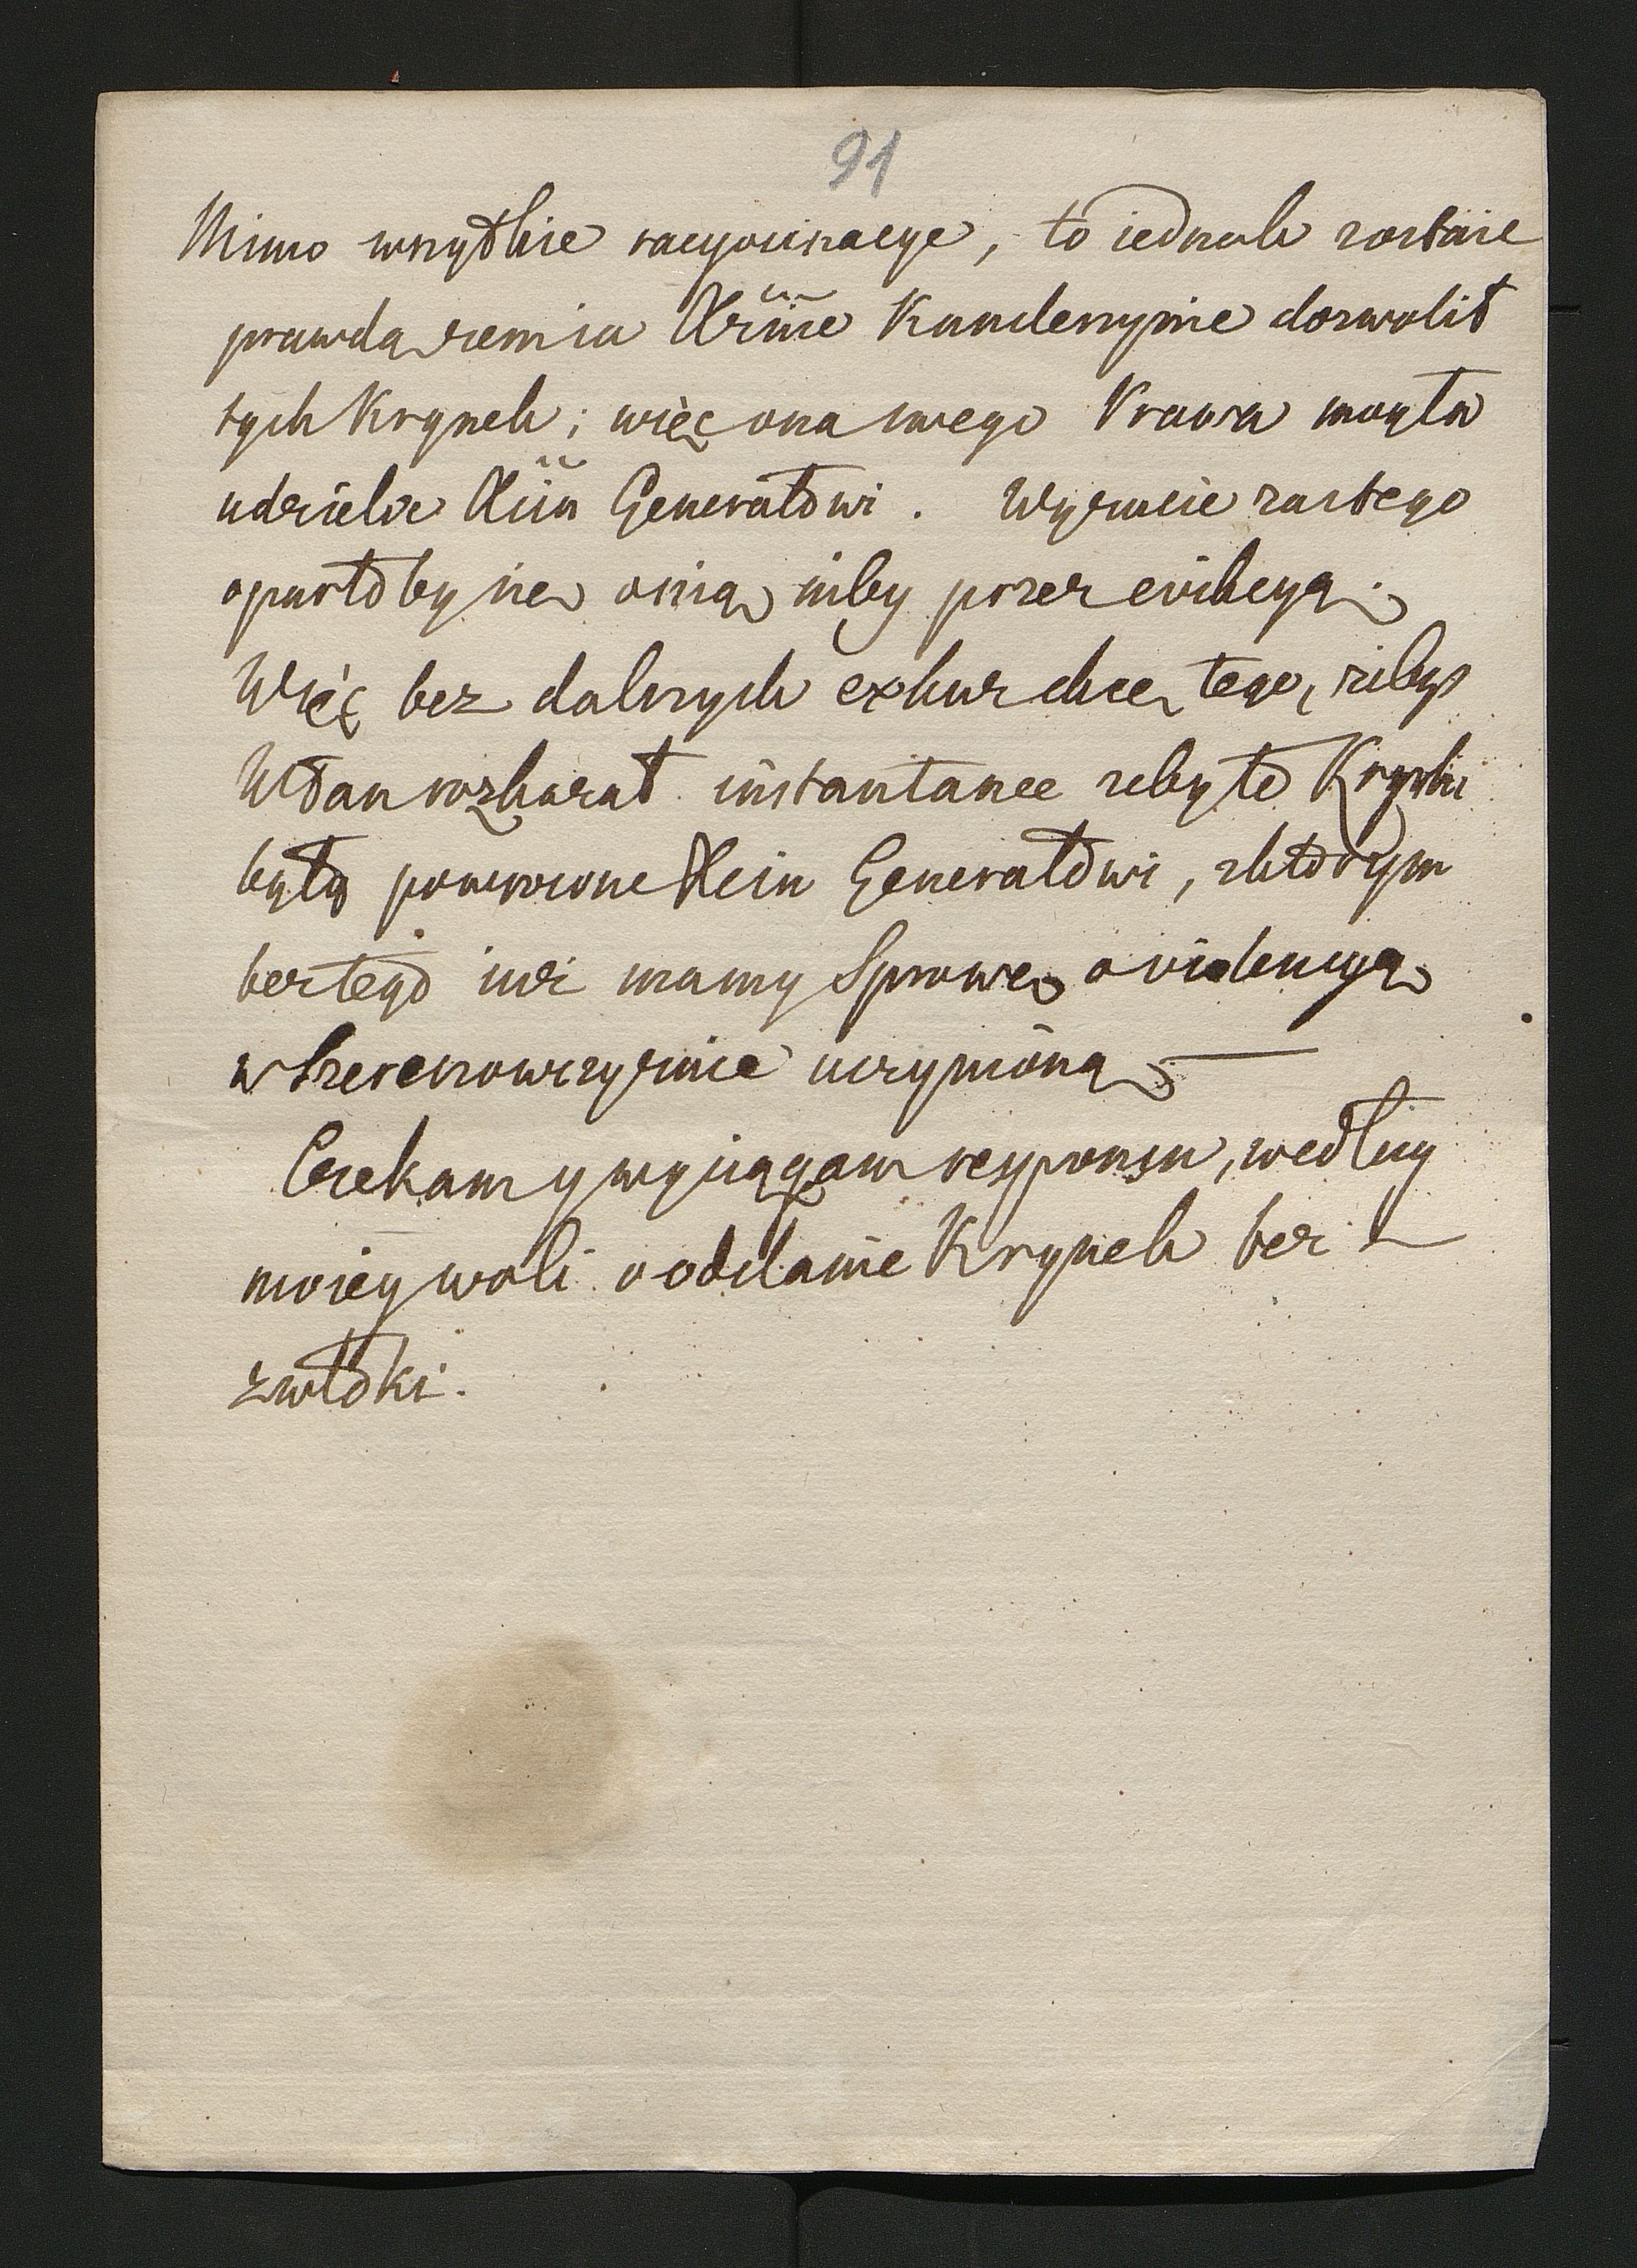 91
Mimo wszystkie racyocinacye, to iednak zostaie
prawdą żem ia Xżnie Kanclerzynie dozwolił
tych Krynek; więc ona swego Prawa mogła
udzielić Xciu Generałowi. Wyzucie zas tego
oparłoby się o mą niby przez ewikcyą.
Więc bez dalszych exkuz chcę tego, żebyś
WPan rozkazał instantanee żeby te Krynki
były powrocone Xciu Generałowi, z ktorym
bez tego iuż mamy Sprawę o videncyą
w Szereszowszczyznie uczynioną
Czekam y wyciągam responsu, według
moiey woli o oddanie Krynek bez
zwłoki.